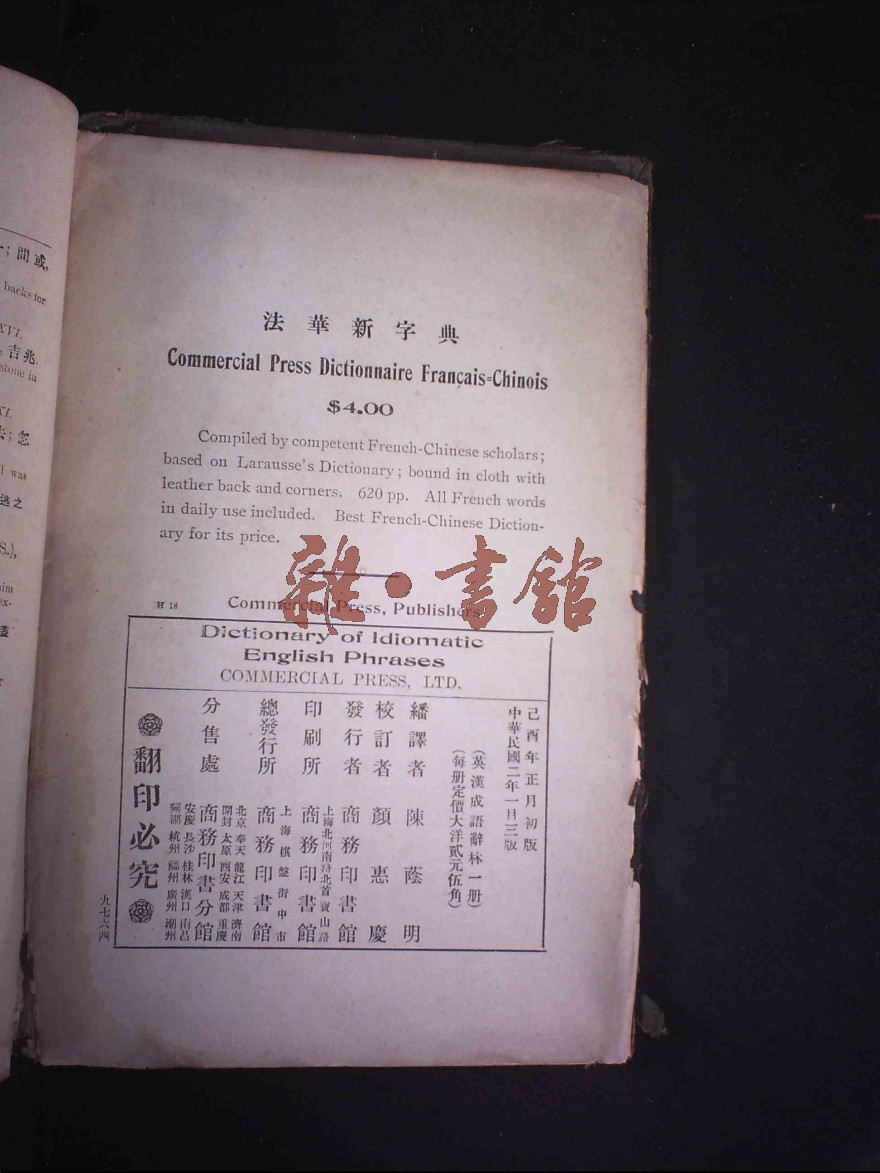 ；問或，
backs for
XVI.
，吉兆．
stone in
XI.
；忽
I was
逃之
S.),
him
ex-
法華新字典
Commercial Press Dictionnaire Français=Chinois
$4.00
Compiled by competent French-Chinese scholars;
based on Larausse's Dictionary; bound in cloth with
leather back and corners. 620 pp. All French words
in daily use included. Best French-Chinese Diction-
ary for its price.
雜·書館
H 18 Commercial Press, Publishers
Dictionary of Idiomatic
English Phrases
COMMERCIAL PRESS, LTD.
己酉年正月初版
中華民國二年一月三版
（英漢成語辭林一册）
（每册定價大洋貳元伍角）
繙譯者 陳蔭明
校訂者 顏惠慶
發行者 商務印書館
上海北河南路北首寶山路
印刷所 商務印書館
上海棋盤街中市
總發行所 商務印書館
北京 奉天 龍江 天津 濟南
開封 太原 西安 成都 重慶
分售處 商務印書分館
安慶 長沙 桂林 漢口 南昌
蕪湖 杭州 福州 廣州 潮州
翻印必究
九七六四